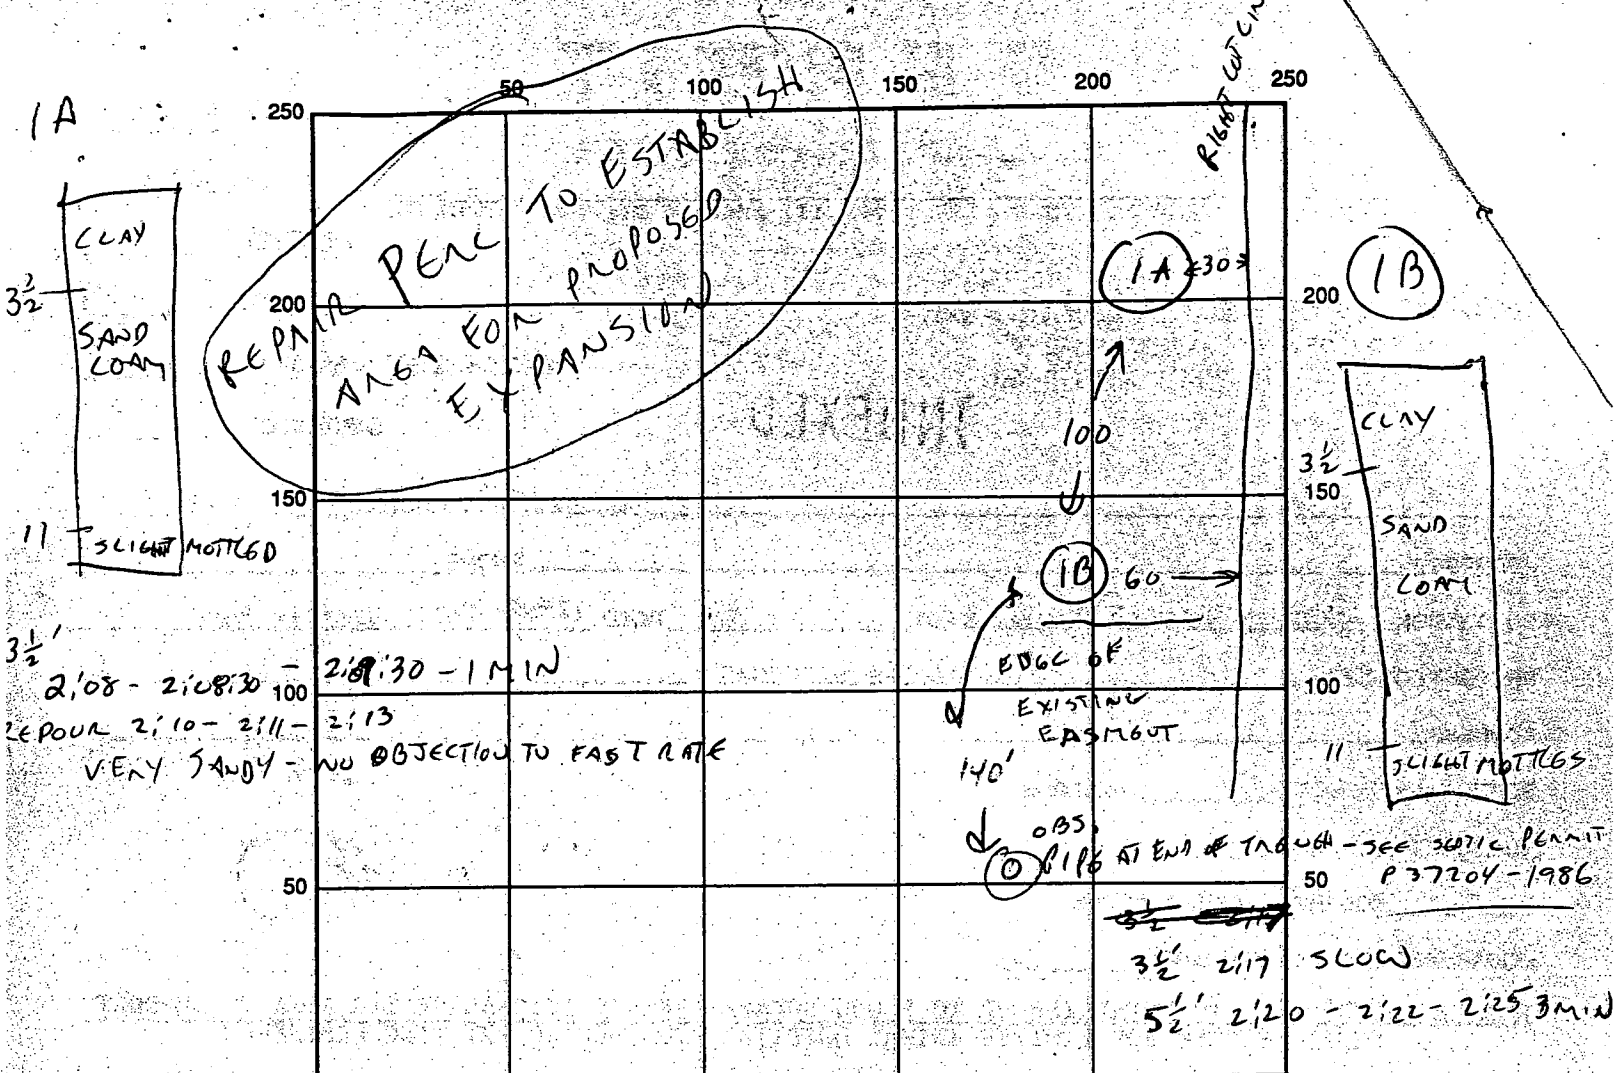 RIGHT LOT LIN
50 100 150 200 250
250
1A
CLAY
3 1/2
SAND
LOAM
11
SLIGHT MOTTLED
REPAIR PERC TO ESTABLISH
AREA FOR PROPOSED
EXPANSION
200
150
100
50
1A ←30→
100
1B 60 →
EDGE OF
EXISTING
EASMENT
140'
OBS.
PIPE AT END OF TRENCH - SEE SEPTIC PERMIT
P 37204 - 1986
200
150
100
50
1B
CLAY
3 1/2
SAND
LOAM
11
SLIGHT MOTTLES
3 1/2'
2:08 - 2:08:30 - 2:09:30 - 1 MIN
REPOUR 2:10 - 2:11 - 2:13
VERY SANDY - NO OBJECTION TO FAST RATE
3 1/2' 2:17 SLOW
5 1/2' 2:20 - 2:22 - 2:25 3 MIN